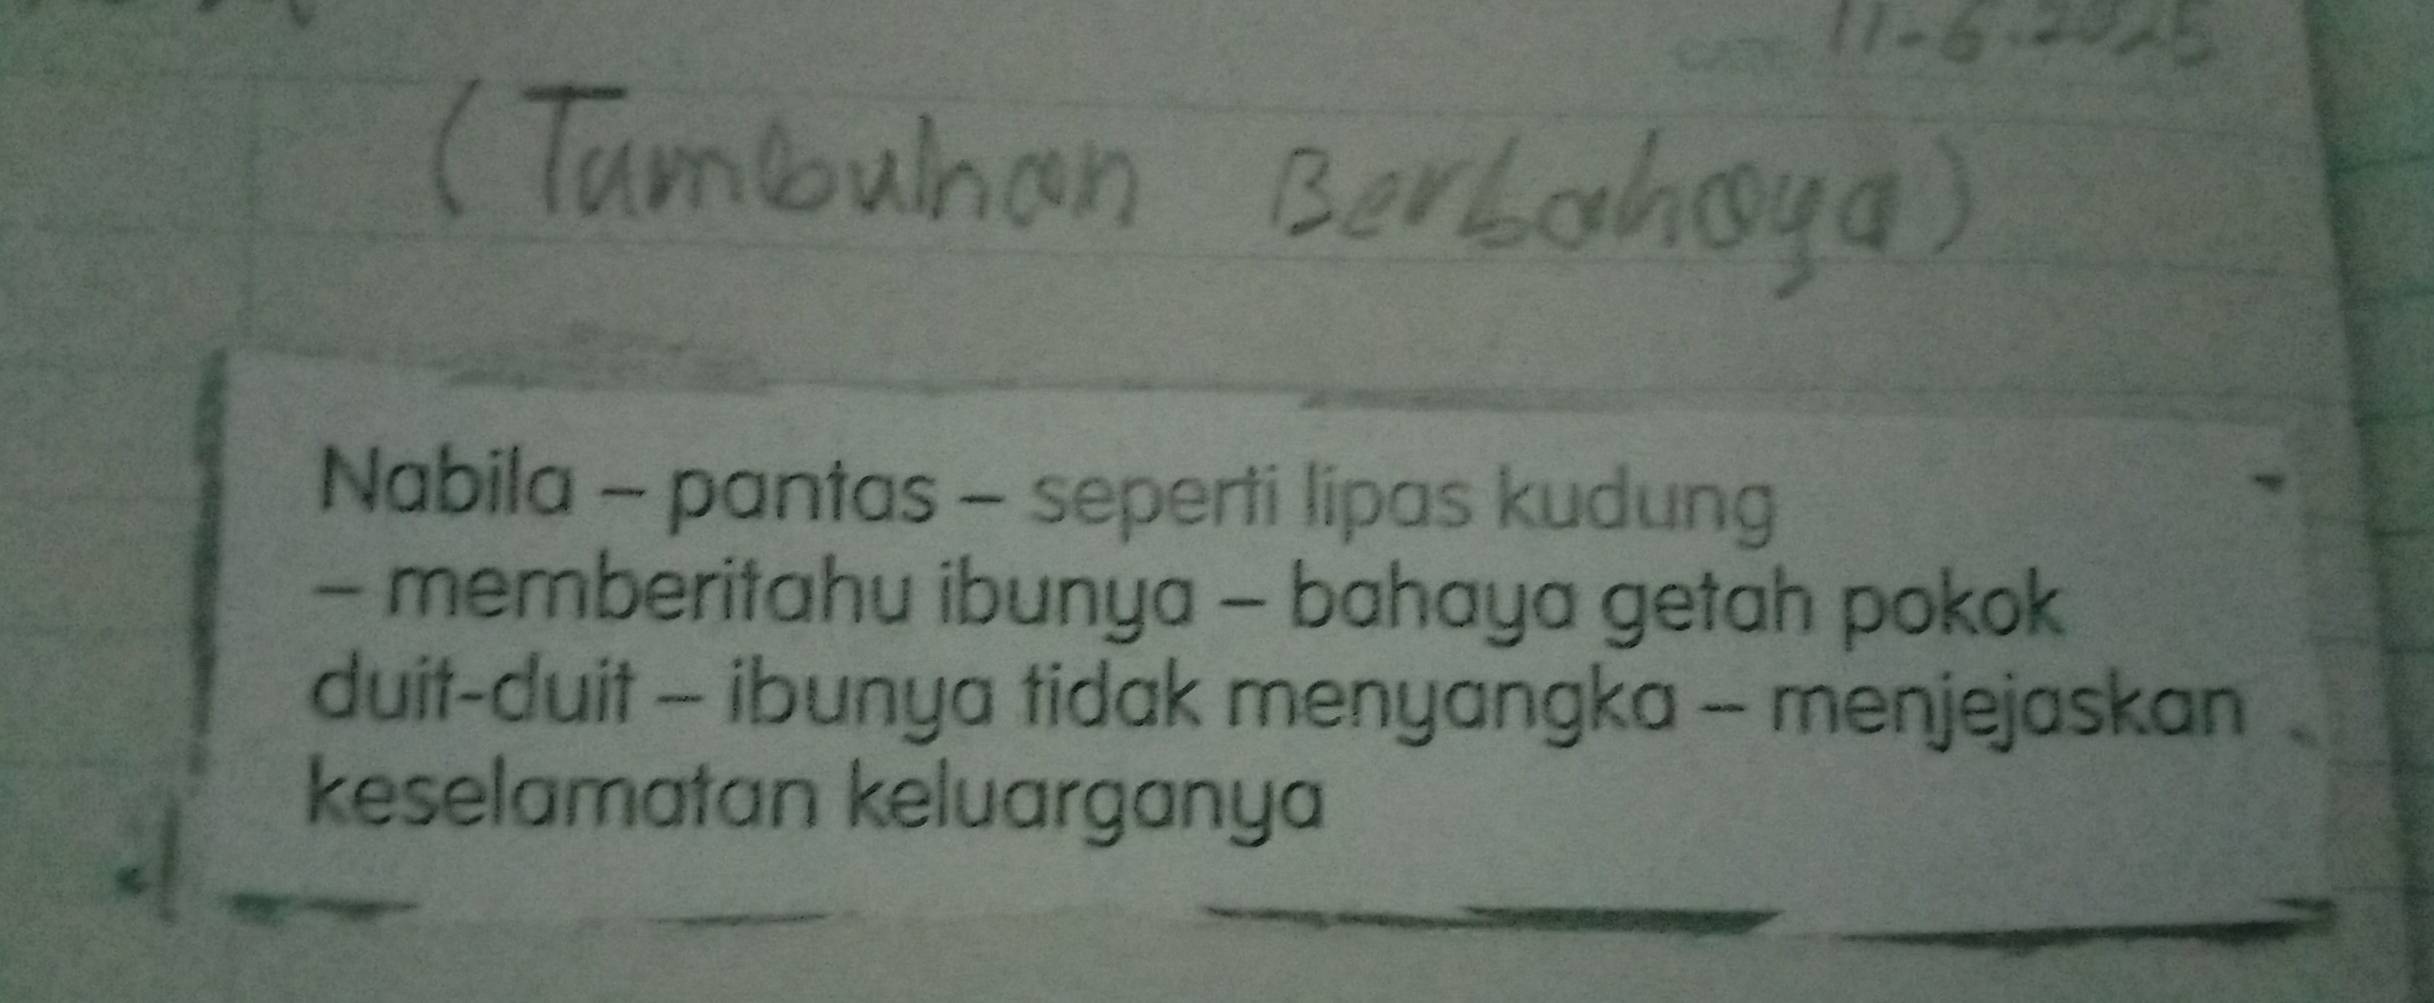 11-6-2025
(Tumbuhan Berbahaya)
Nabila – pantas – seperti lipas kudung
– memberitahu ibunya – bahaya getah pokok
duit-duit – ibunya tidak menyangka – menjejaskan
keselamatan keluarganya